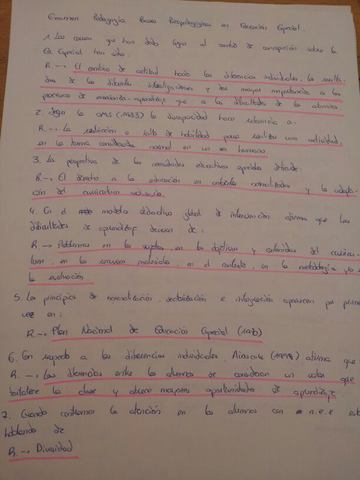 Examen Pedagogía Bases Psicopedagógicas en Educación Especial
1. Las causas que han dado lugar al cambio de concepción sobre la
Ed. Especial han sido:
R.→ El cambio de actitud hacia las diferencias individuales, los resulta-
dos de las diferentes investigaciones y dar mayor importancia a los
procesos de enseñanza-aprendizaje que a las dificultades de los alumnos.
2. Según la OMS (1983) la discapacidad hace referencia a:
R.→ La restricción o falta de habilidad para realizar una actividad,
en la forma considerada normal en un ser humano.
3. La perspectiva de las necesidades educativas especiales defiende:
R.→ El derecho a la educación en entornos normalizados y la adapta-
ción del curriculum ordinario.
4. En el modelo didáctico global de intervención afirma que las
dificultades de aprendizaje derivan de:
R.→ Problemas en los sujetos, en los objetivos y contenidos del curricu-
lum, en los recursos materiales, en el contexto, en la metodología y/o en
la evaluación
5. Los principios de normalización, sectorización e integración aparecen por primera
vez en:
R.→ Plan Nacional de Educación Especial (1978)
6. Con respecto a las diferencias individuales, afirma que
R.→ Las diferencias entre los alumnos se consideran un valor que
fortalece la clase y ofrece mayores oportunidades de aprendizaje.
7. Cuando centramos la atención en los alumnos con n.e.e. est
hablando de
R.→ Diversidad